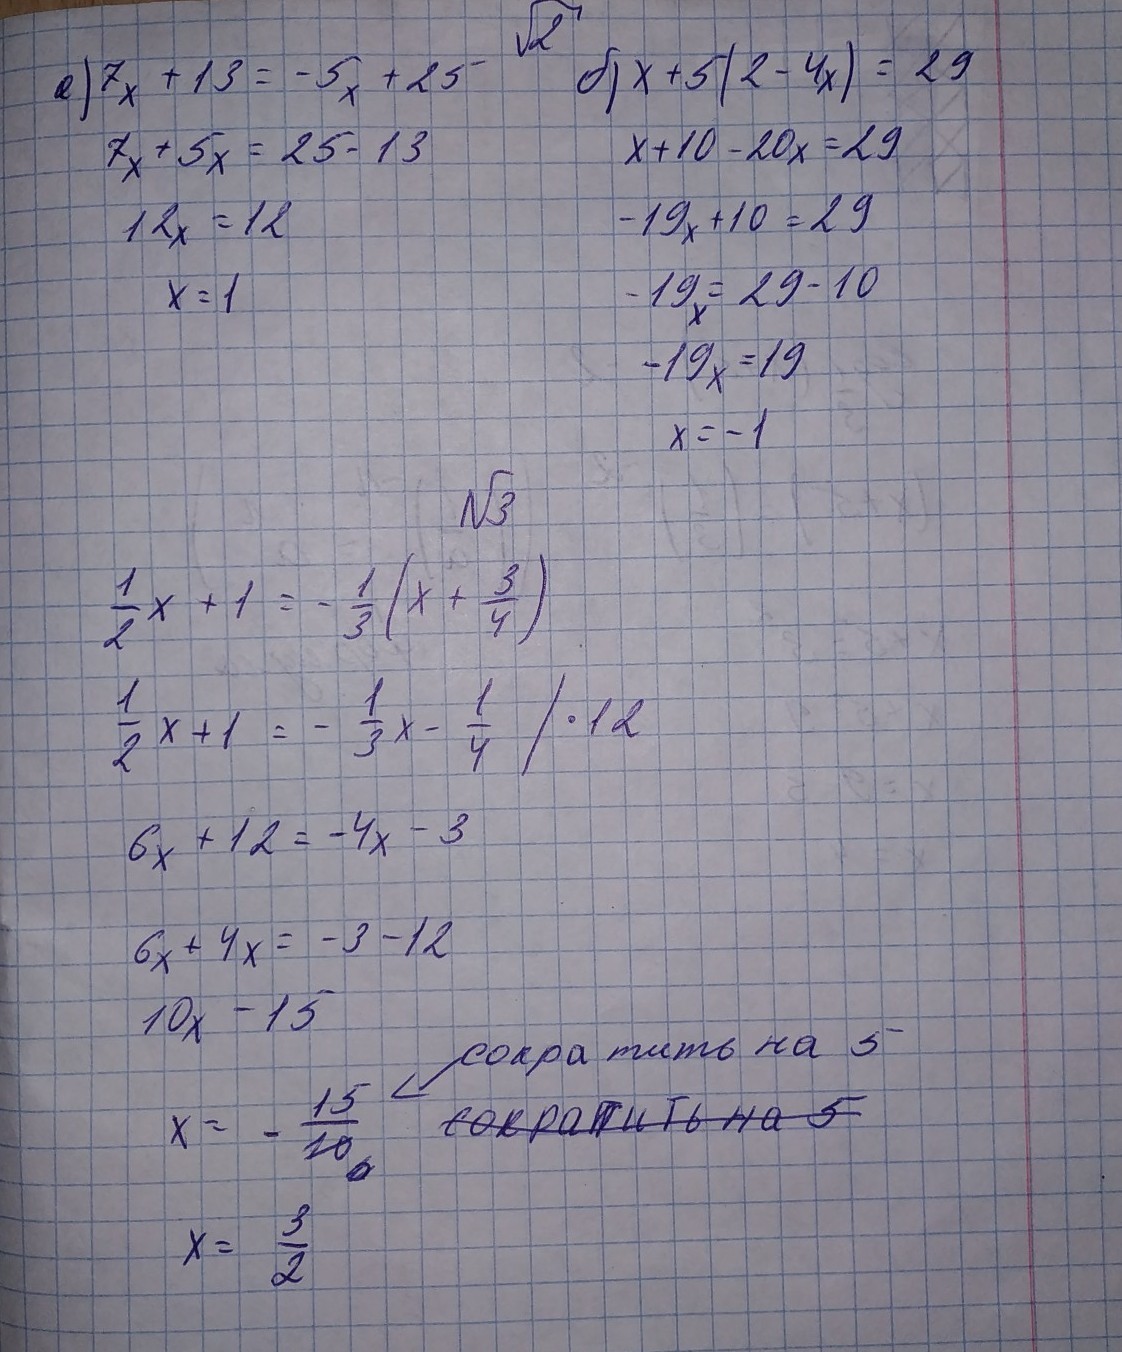 √2
а) 7x + 13 = -5x + 25
7x + 5x = 25 - 13
12x = 12
x = 1
б) x + 5(2 - 4x) = 29
x + 10 - 20x = 29
-19x + 10 = 29
-19x = 29 - 10
-19x = 19
x = -1
№3
1/2 x + 1 = - 1/3 (x + 3/4)
1/2 x + 1 = - 1/3 x - 1/4 / · 12
6x + 12 = -4x - 3
6x + 4x = -3 - 12
10x - 15
сократить на 5
x = - 15/10 сократить на 5
x = 3/2